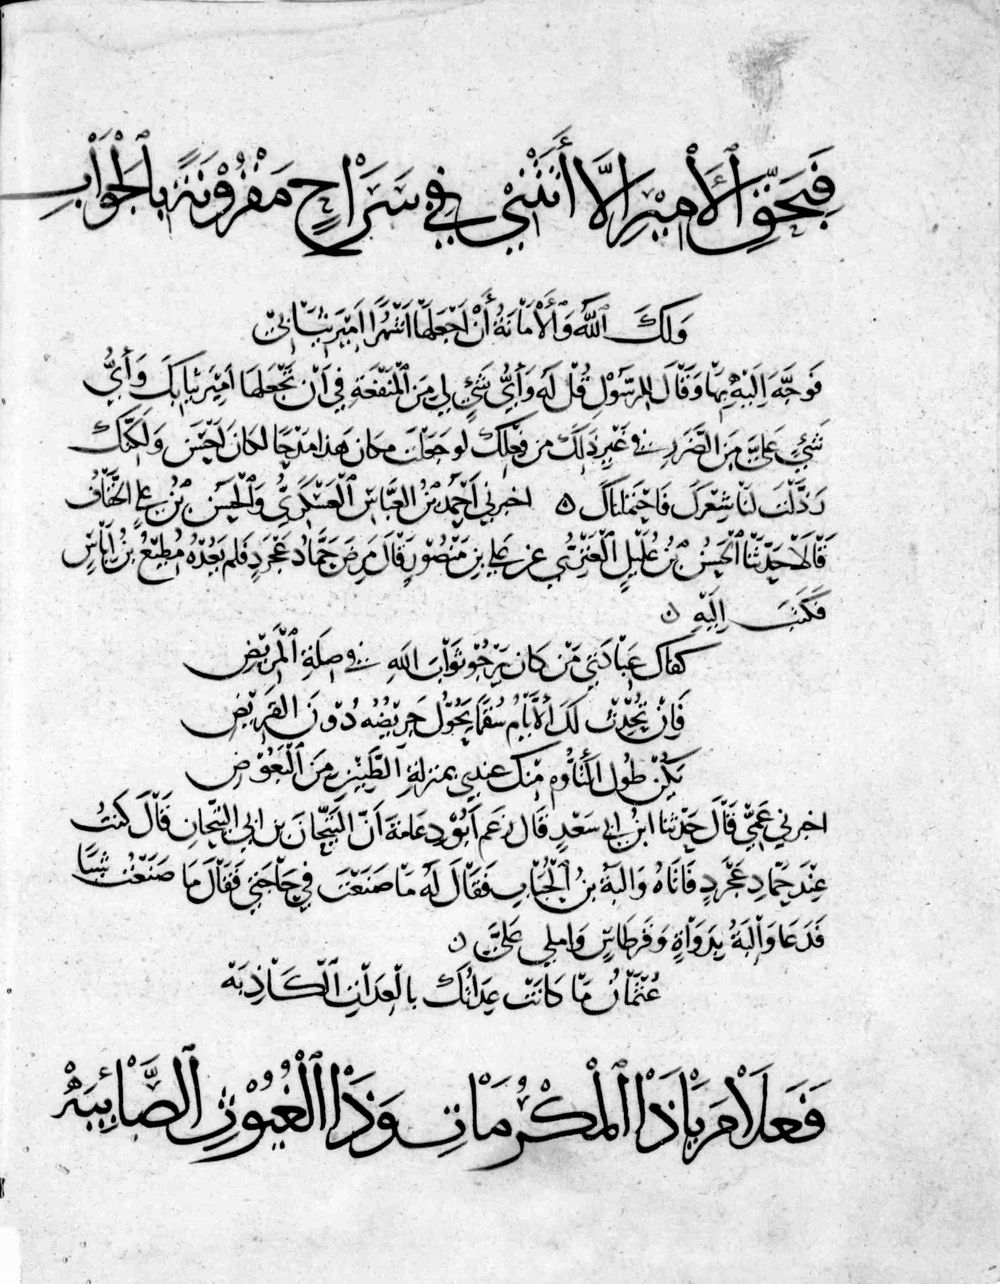 فَبِحَقِّ ٱلْأَمِيرِ إِلَّا أَتَتْنِي فِي سَرَاحٍ مَقْرُونَةً بِٱلْجَوَابِ
وَلَكَ ٱللَّهُ وَٱلْأَمَانَةُ أَنْ اجْعَلَهَا اشْهُرًا امِيرَ ثِيَابِيْ
فَوَجَّهَ اِلَيْهِ بِهَا وَقَالَ لِلرَّسُوْلِ قُلْ لَهُ وَأَيُّ شَيْءٍ لِي مِنَ ٱلْمَنْفَعَةِ فِي أَنْ تَجْعَلَهَا امِيْرَ ثِيَابِكَ وَأَيُّ
شَيْءٍ عَلَيَّ مِنَ الضَّرَرِ فِي غَيْرِ ذَلِكَ مِن فِعْلِكَ لو جَعَلْتَ مكان هَذا مَدِيْحًا لكان أَحْسَنَ وَلَكِنَّكَ
رَذَّلْتَ لَنَا شِعْرَكَ فَاحْتَمَلْنَاكَ ه اخبرني أَحْمَدُ بْنُ العَبَّاسِ ٱلْعَسْكَرِيُّ وَٱلْحَسَن بْنُ عَلِيٍّ الخَفَّافُ
قَالَا حَدَّثَنَا ٱلْحَسَنُ بْنُ عُلَيْلٍ ٱلْعَنَزِيُّ عن عَلِيِّ بنِ مَنْصُوْرٍ قَالَ مَرِضَ حَمَّاد عَجْرَدٍ فلم يَعُدْهُ مُطِيْعُ بنُ ايَاسٍ
فَكَتَبَ إِلَيْهِ ن
كفاك عِيَادَتِي مَنْ كان يَرْجُو ثَوَابَ اللهِ فِي صِلَةِ ٱلْمَرِيْضِ
فَإِنْ تُحْدِثْ لَكَ ٱلْأَيَّامُ سُقْمًا يَحُوْلُ جَرِيْضُهُ دُوْنَ القَرِيْضِ
يَكُنْ طُولُ التَّأَوُّهِ مِنْكَ عِنْدِي بِمنزلةِ الطَّنِيْنِ مِنَ ٱلْبَعُوْضِ
اخبرني عَمِّي قَالَ حَدَّثَنَا ابنُ ابي سَعْدٍ قَال زَعَم أَبُوْ دِعَامَةَ أَنَّ التَّيِّحَانَ بن ابي التَّيِّحَانِ قَالَ كُنْتُ
عِنْدَ حَمَّادِ عَجْرَدٍ فَاتَاهُ وَالِبَةُ بنُ ٱلْحُبَابِ فَقَالَ لَهُ مَا صَنَعْتَ فِي حَاجَتِي فَقَالَ مَا صَنَعْتُ شيئًا
فَدَعَا وَالِبَةُ بِدَوَاةٍ وَقِرطَاسٍ وَامْلى عَلَيَّ ن
عُثْمَانُ مَا كَانَتْ عِدَاتُكَ بالْعِدَاتِ ٱلْكَاذِبَهْ
فَعَلَامَ يَاذَا ٱلْمَكْرُمَاتِ وَذَا ٱلْغُيُوْثِ ٱلصَّائِبَهْ